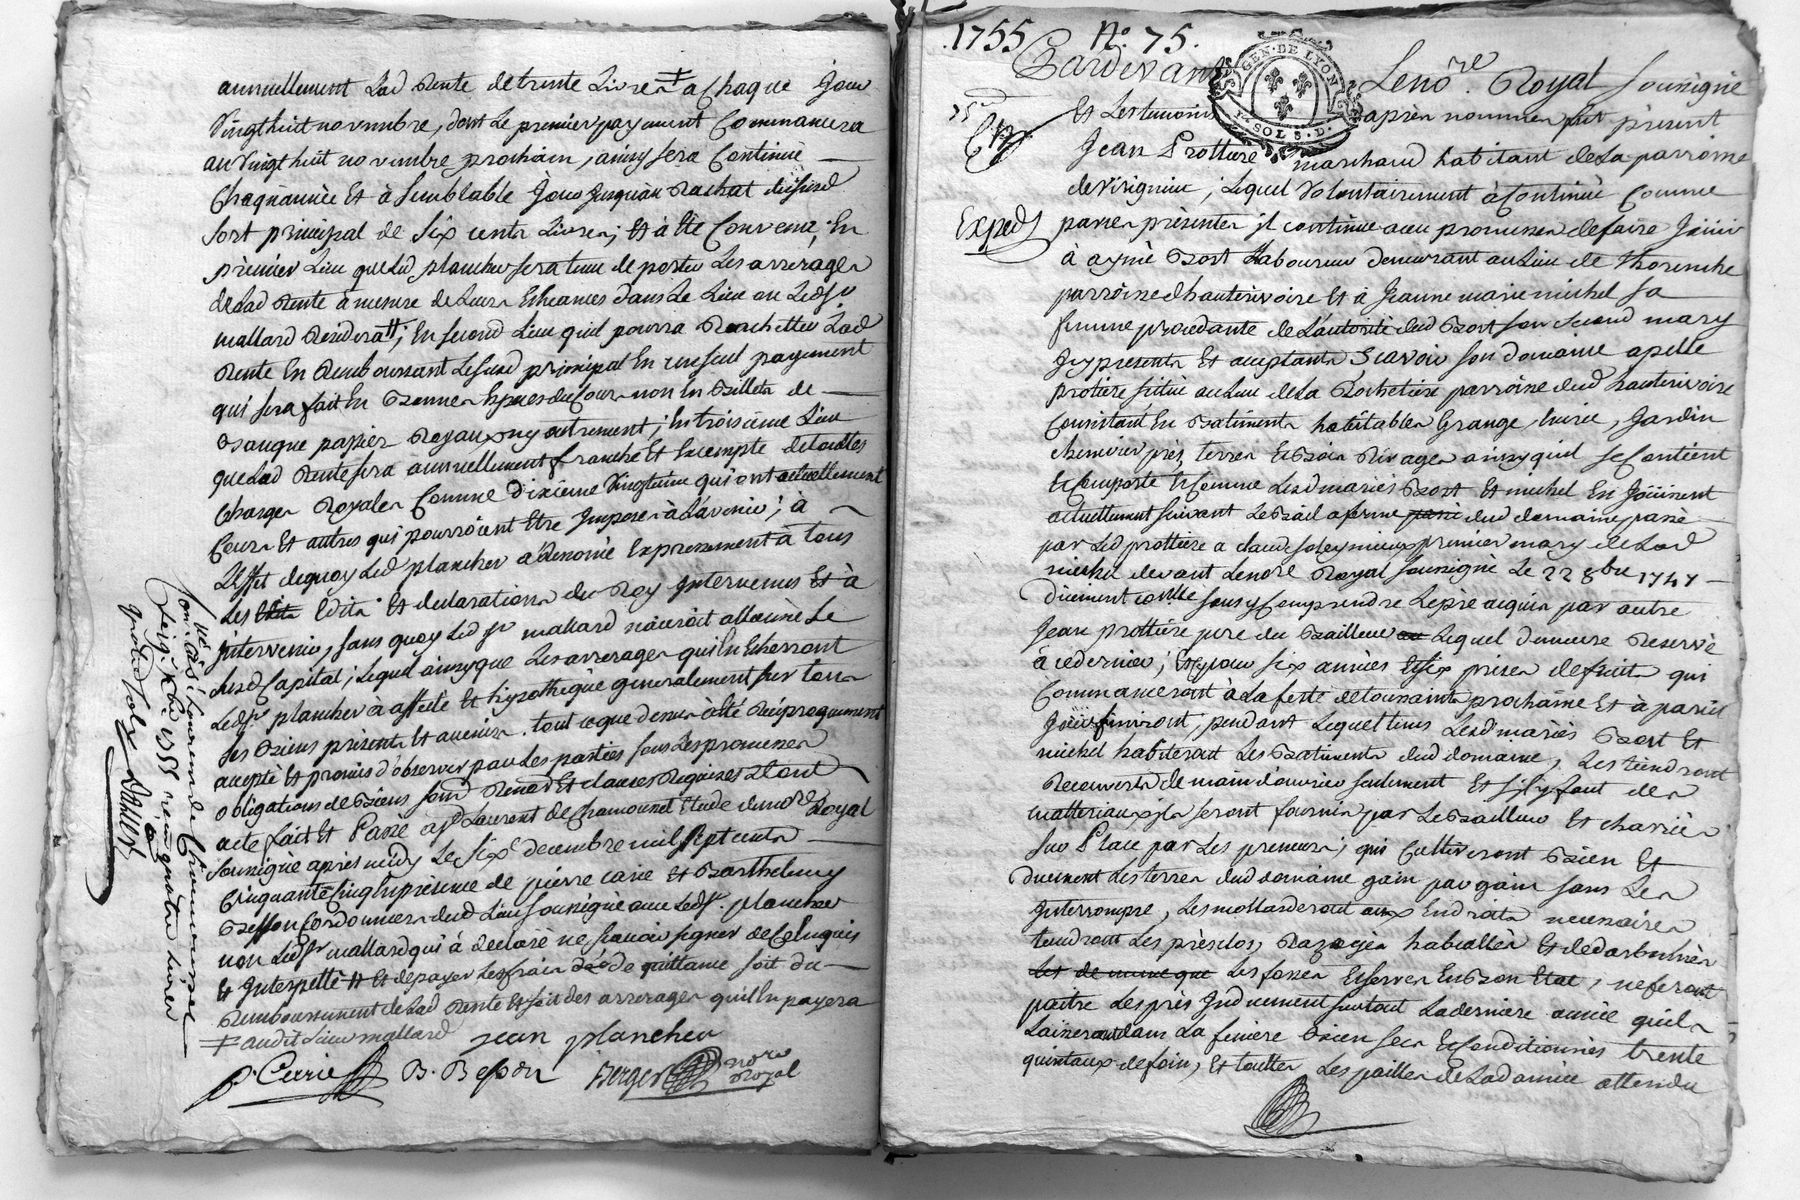 annuellement Lad Rente de trente Livres ‡ a Chaque Jour
Vingthuit novembre, dont Le premier payement Commancera
au Vingt huit novembre prochain, ainsy sera Continué
Chaqu'année Et à Semblable Jour Jusquau Rachat dud
Sort principal de Six cents Livres; Et à Eté Convenu; En
premier Lieu que Led plancher sera tenu de porter Les arrerages
de Lad Rente à mesure de Leurs Echeances dans Le Lieu ou Led Sr
mallard Residera; En second Lieu quil pourra Rachetter Lad
Rente En Remboursant Le susd principal En un seul payement
qui sera fait En Bonnes Especes du Cours non En Billets de
Banque papier Royaux ny autrement; En troisieme Lieu
que Lad Rente sera annuellement franche Et Exempte de touttes
Charges Royales Comme dixieme Vingtieme qui ont actuellement
Cours Et autres qui pourroient Etre Imposés à L'avenir; à
L'Effet dequoy Led plancher a Renoncé Expressement à tous
Les Edits Et declarations du Roy Intervenus Et à
Intervenir, sans quoy Led Sr mallard n'auroit alliéné Le
susd Capital; Lequel ainsyque Les arrerages quil En Echerront
Led Sr plancher à affecté Et hypothequé generalement sur tous
ses Biens presents Et avenir. tout ceque dessus à été Reciproquement
accepté Et promis d'observer par Les parties sous Les promesses
obligations de Biens soumd Renond Et clauses Requises Dont
acte fait Et Passé a St Laurent de Chamousset Etude du nore Royal
soussigné après midy Le Six decembre mil Sept cents
Cinquante Cinq En presence de pierre Carie Et Barthelemy
Besson Cordonniers dud Lieu soussignés avec Led Sr. plancher
non Led Sr mallard qui à declaré ne sçavoir signer de Ce Enquis
Et Interpellé Et de payer Les frais de quittance soit du
Remboursement de Lad Rente Et soit des arrerages quil En payera
‡ audit sieur mallard
jean plancher
P. Carie B. Besson Berger nore Royal
1755 N.° 75.
Pardevant Le nore. Royal soussigné
GEN. DE LYON
SOLS. D.
Et Les temoins après nommés fut présent
Jean Prottiere marchand habitant de La parroisse
Exped
de Virigneu; Lequel Volontairement à Continué Comme
par ces présentes il continue avec promesses de faire Jouir
à aymé Bost Laboureur demeurant au Lieu de Thorenche
parroisse d'hauterivoire Et à Jeanne marie michel sa
femme procedante de L'autorité dud Bost son second mary
Icy presents Et acceptants Scavoir son domaine apellé
protiere situé au Lieu de La Rochetiere parroisse dud hauterivoire
Consistant En Batiments habitables Grange, Ecurie, Jardin
chenevier prés, terres Et Bois Rivages ainsy quil se Contient
Et Comporte Et Comme Lesd mariés Bost Et michel En Joüissent
actuellement suivant Le Bail a ferme dud domaine passé
par Led prottiere a claude soleymieux premier mary de Lad
michel devant Le nore Royal soussigné Le 22 8bre 1747
Duement con.lle sans y Comprendre Le pré acquis par autre
Jean prottiere pere du Bailleur Lequel demeure Reservé
à ce dernier; Et pour six années Et six prises de fruits qui
Commanceront à La feste de toussaints prochaine Et à pareil
Jour finiront, pendant Lequel tems Lesd mariés Bost Et
michel habiteront Les Batiments dud domaine, Les tiendront
Recouverts de main d'ouvrier seulement Et s'il y faut des
matteriaux ils seront fournis par Le Bailleur Et chariés
sur Place par Les preneurs; qui Cultiveront Bien Et
Duement Les terres dud domaine gain par gain sans Les
Interrompre, Les mottarderont aux Endroits necessaires
tiendront Les prés clos, Et
Les fosses Et serves En Bon Etat, ne feront
paitre Les prés Induement surtout La derniere année quils
Laisseront dans La feniere Bien secs Et Conditionnés trente
quintaux de foin, Et touttes Les pailles de Lad année attendu